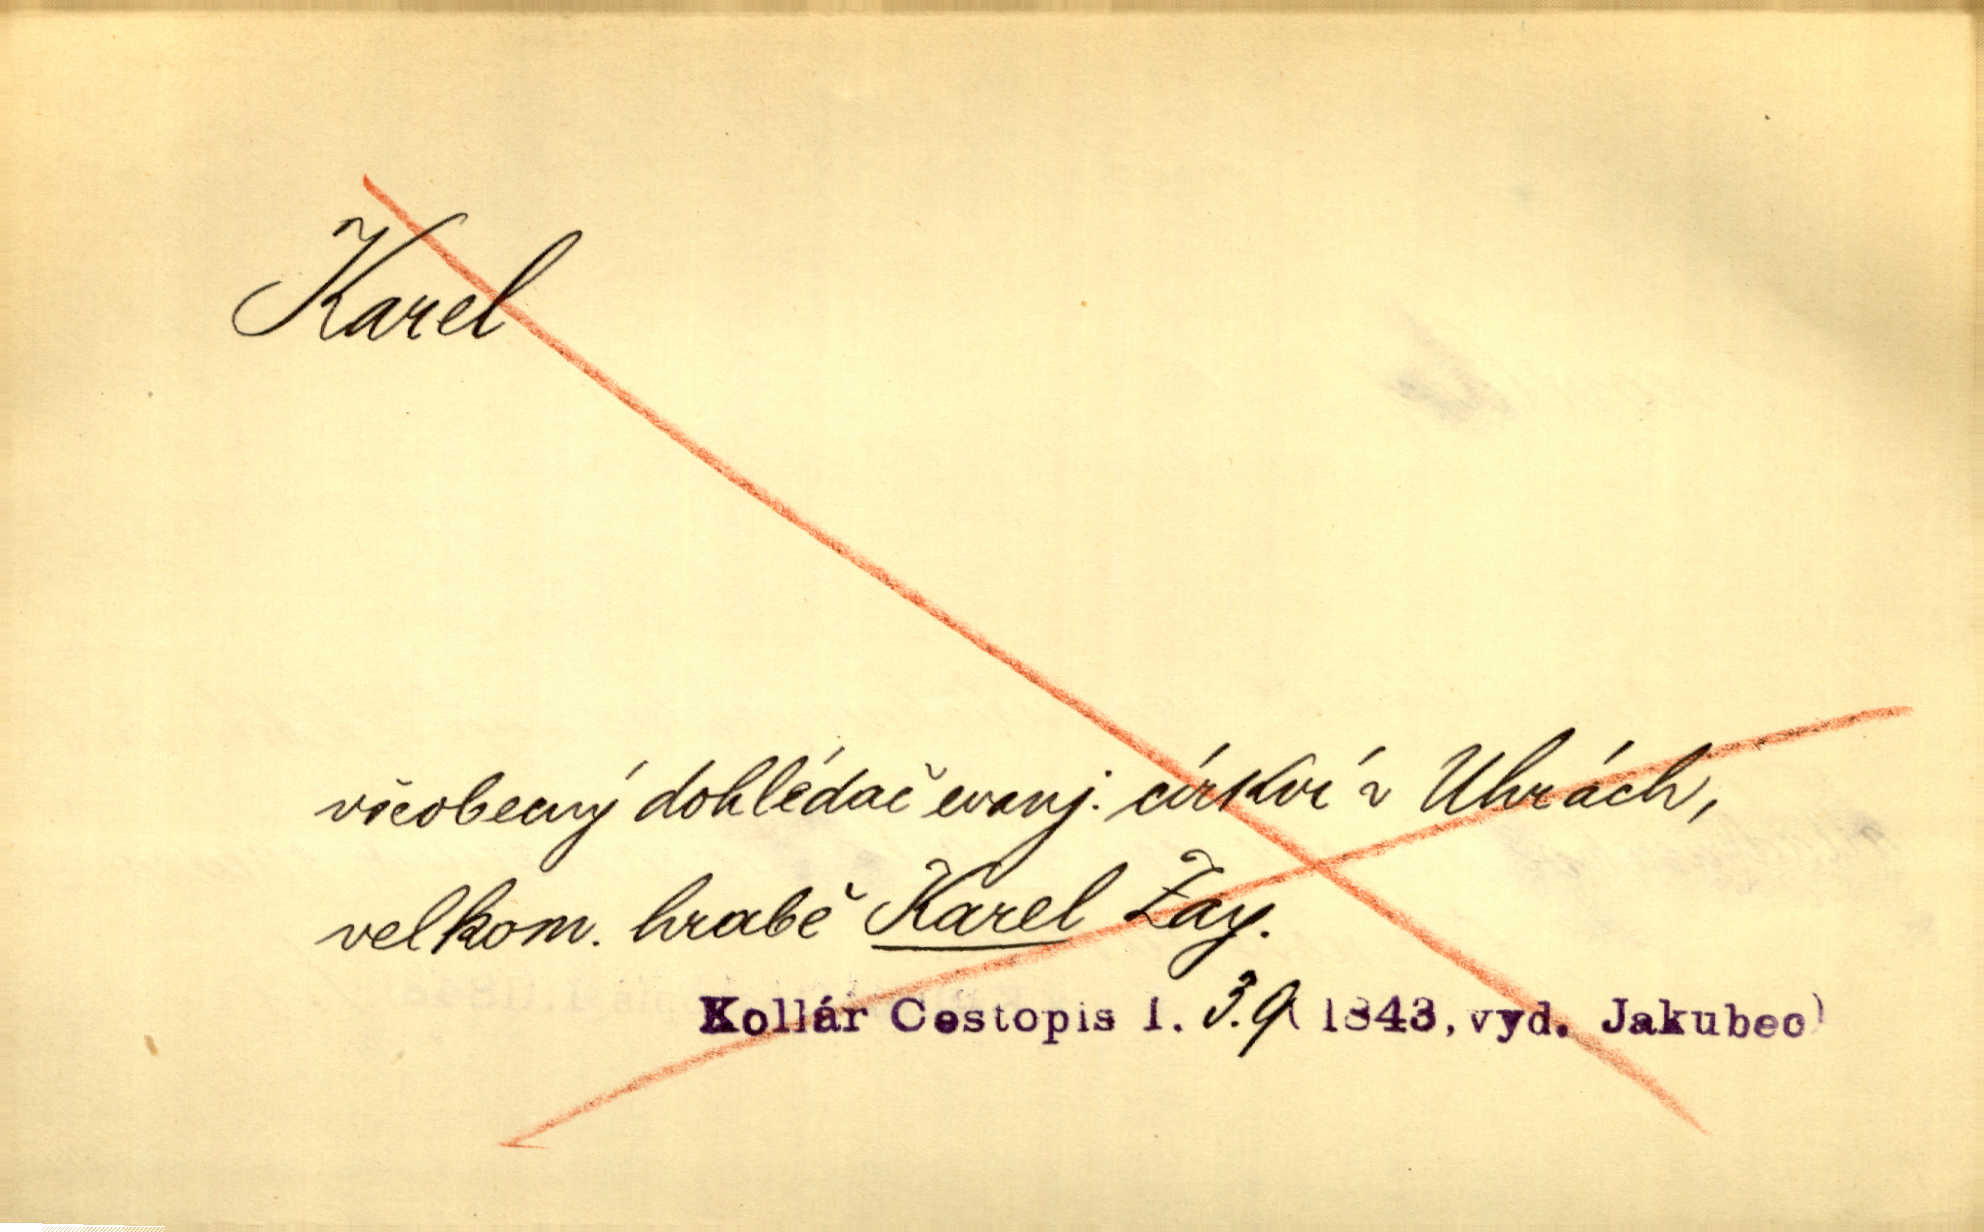 Karel
všeobecný dohlédač evanj. církví v Uhrách,
velkom. hrabě Karel Zay.
Kollár Cestopis I. 3.9 (1843, vyd. Jakubec)